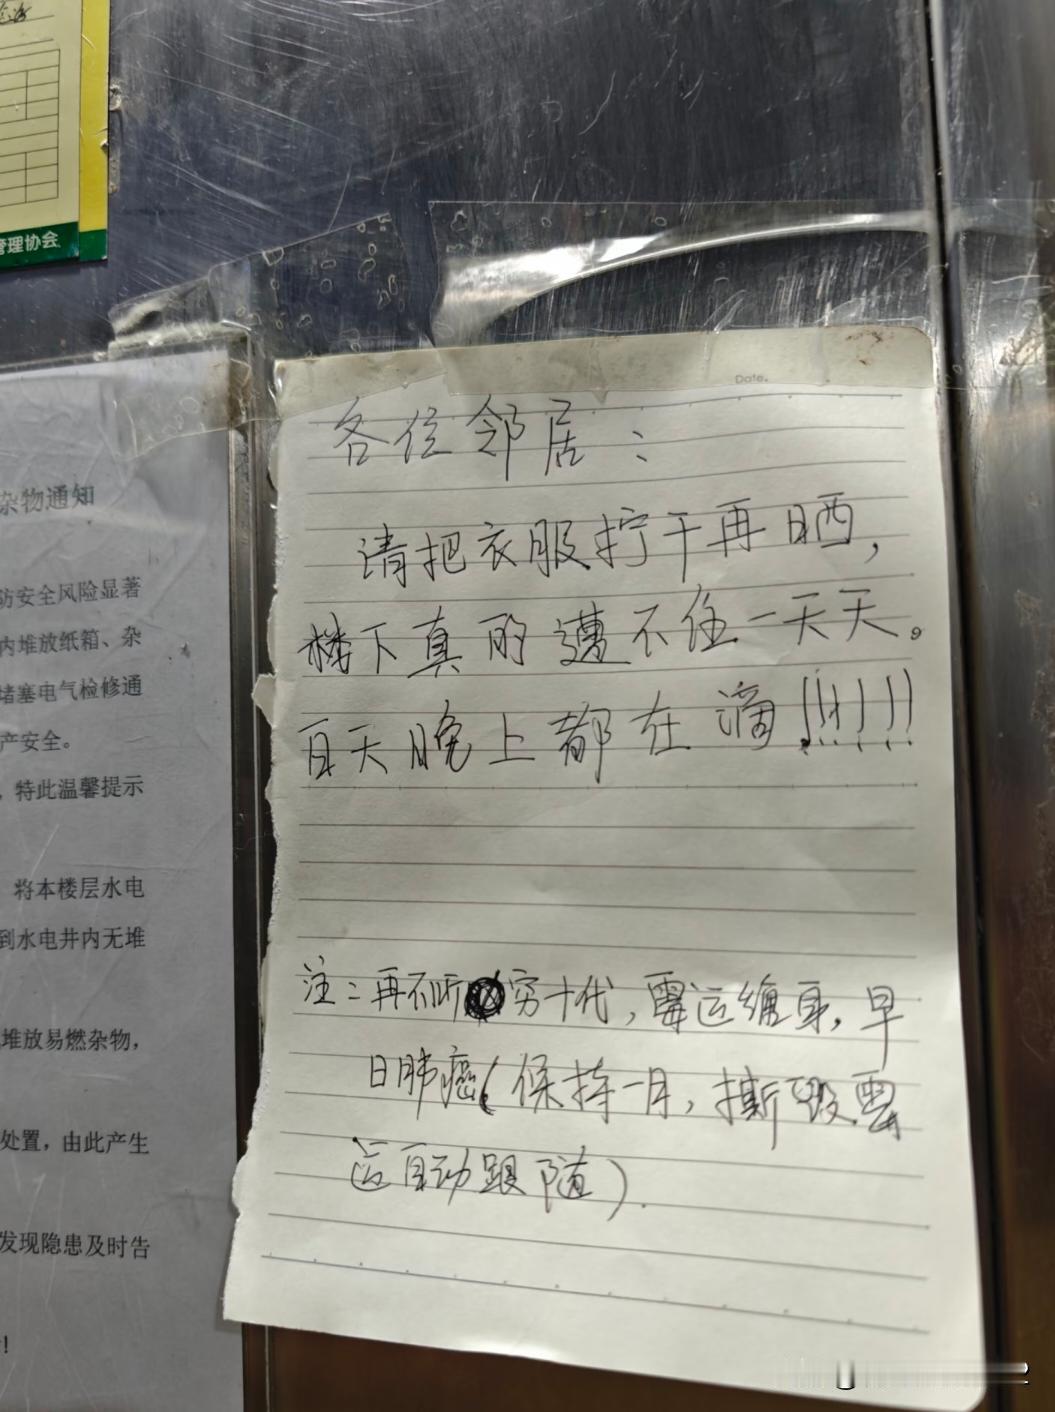 管理协会
杂物通知
防安全风险显著
内堆放纸箱、杂
堵塞电气检修通
产安全。
，特此温馨提示
将本楼层水电
到水电井内无堆
堆放易燃杂物，
处置，由此产生
发现隐患及时告
!
Date.
各位邻居：
请把衣服拧干再晒，
楼下真的遭不住一天天。
白天晚上都在滴！！！！！！
注：再不听穷十代，霉运缠身，早
日肺癌（保持一月，撕毁霉
运自动跟随）.